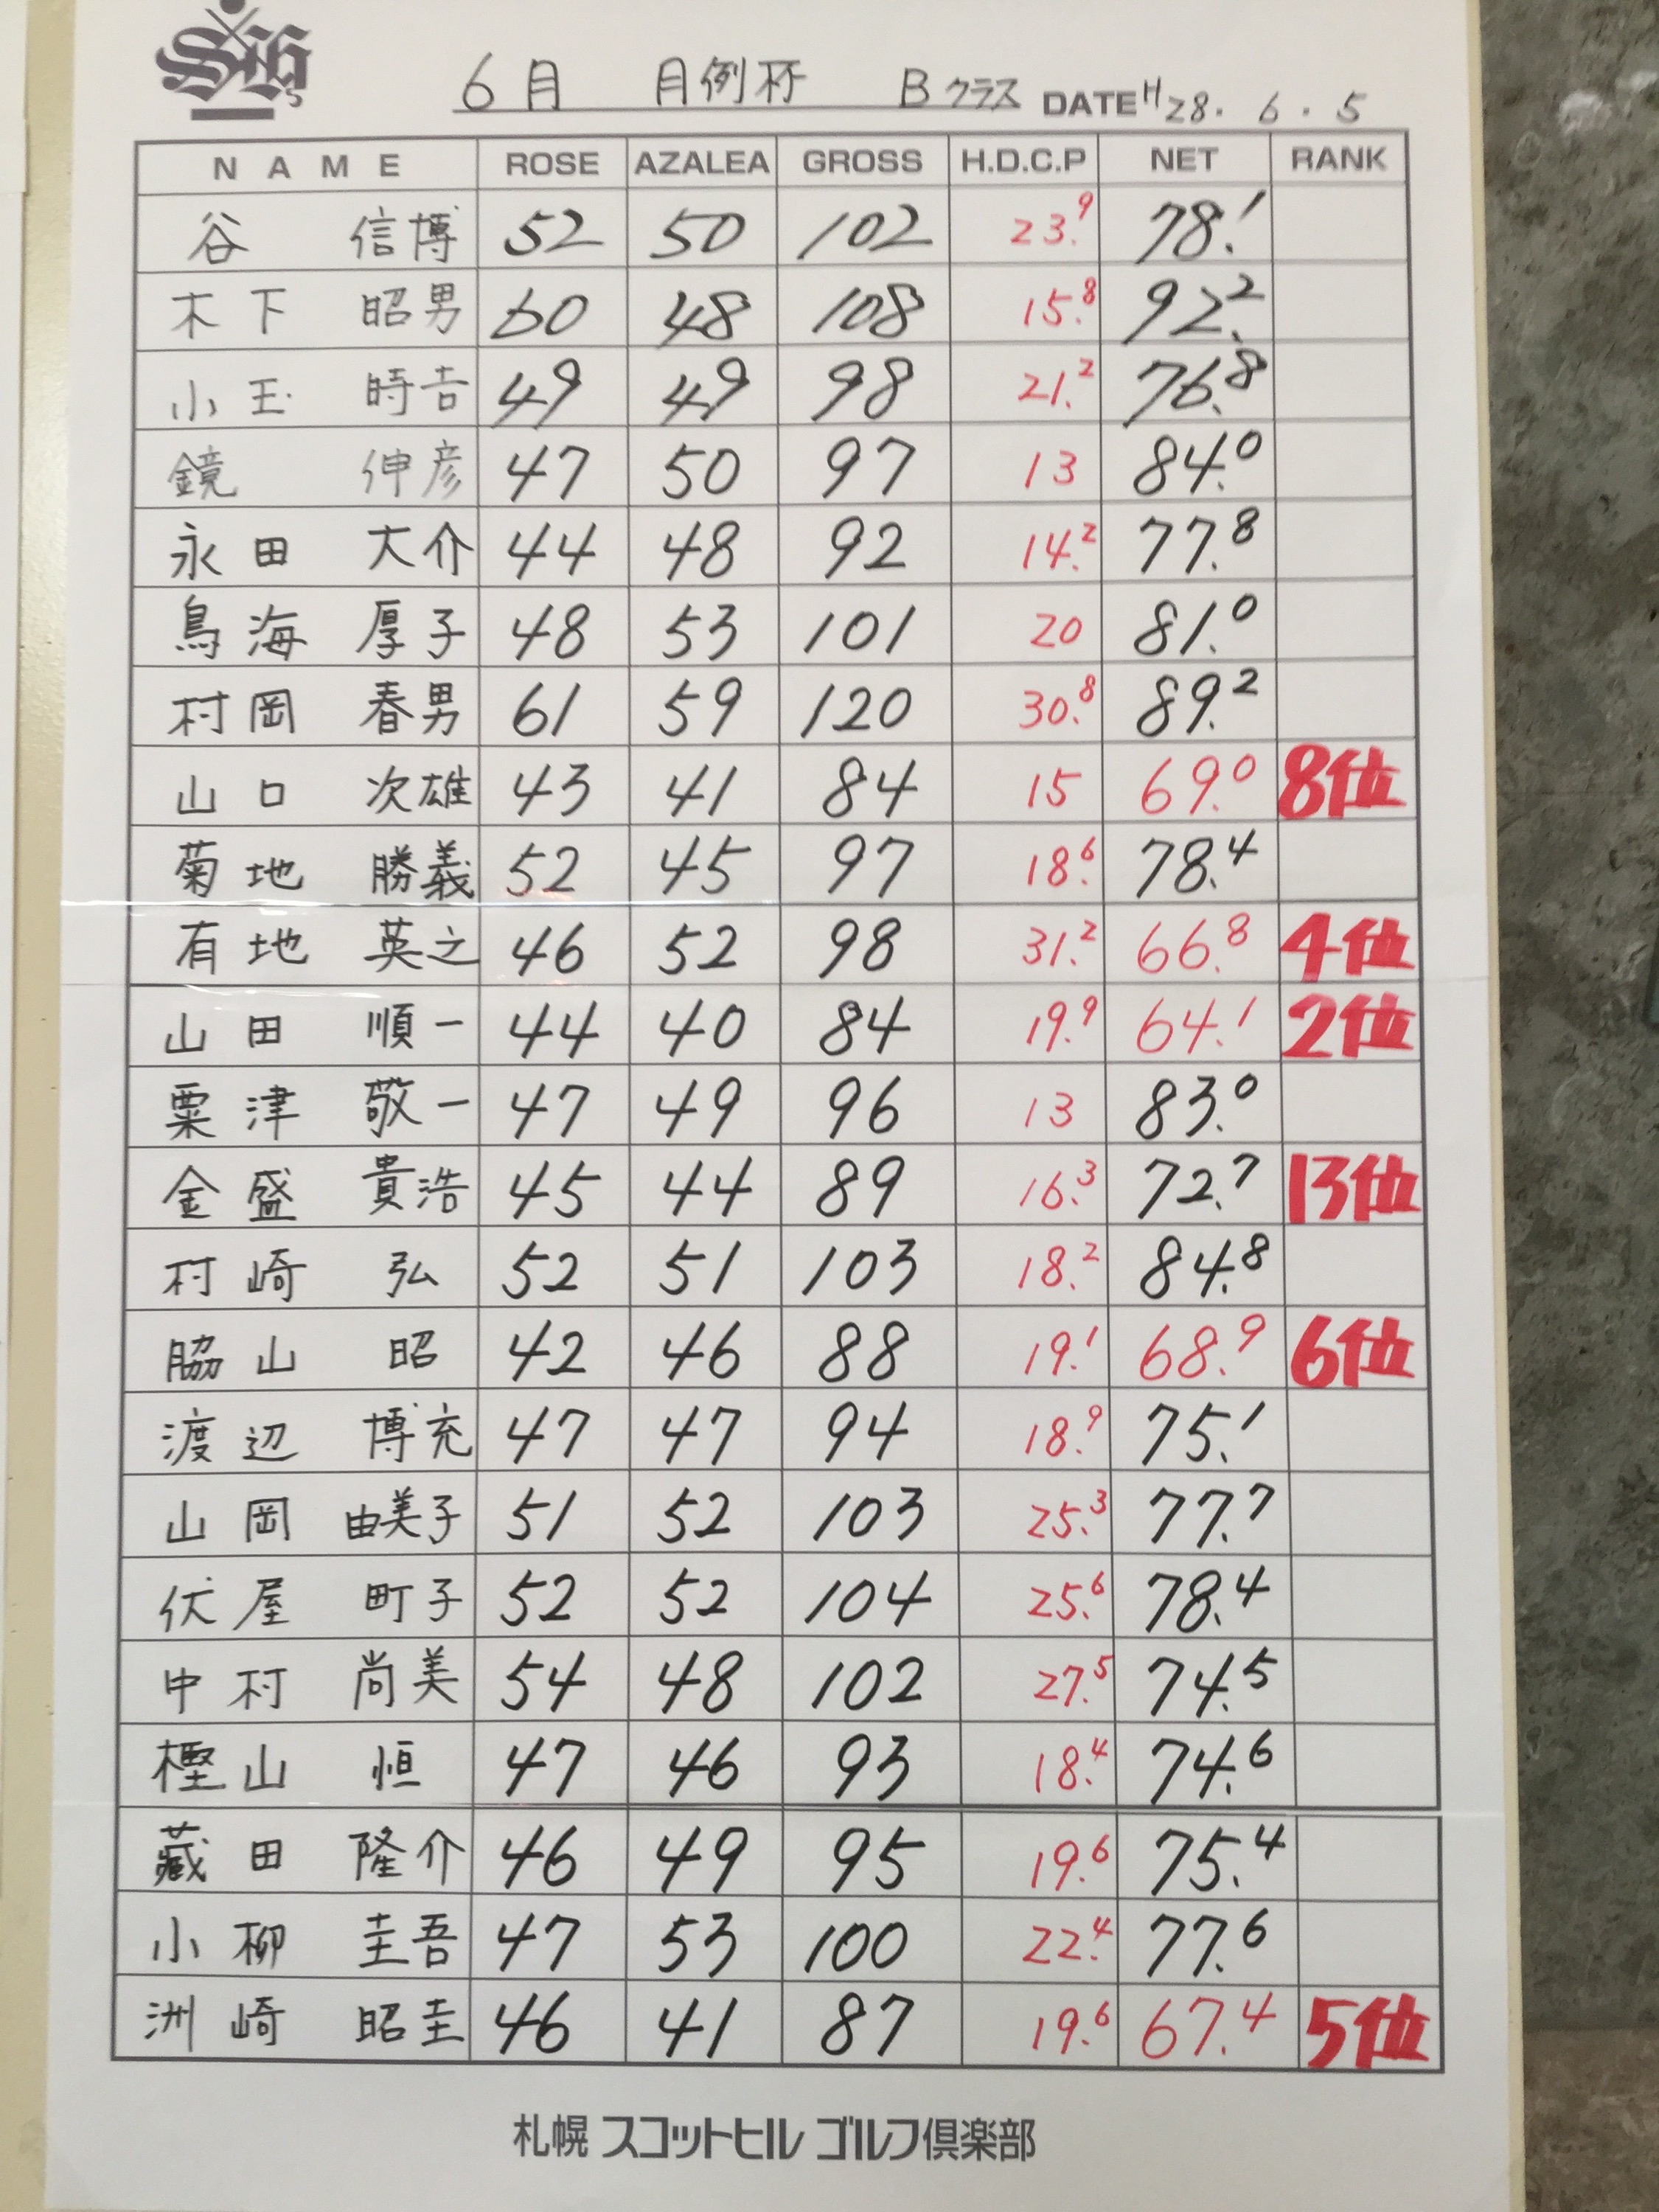 6月 月例杯 Bクラス DATE H28.6.5
NAME ROSE AZALEA GROSS H.D.C.P NET RANK
谷 信博 52 50 102 23.9 78.1
木下 昭男 60 48 108 15.8 92.2
小玉 時吉 49 49 98 21.2 76.8
鏡 伸彦 47 50 97 13 84.0
永田 大介 44 48 92 14.2 77.8
鳥海 厚子 48 53 101 20 81.0
村岡 春男 61 59 120 30.8 89.2
山口 次雄 43 41 84 15 69.0 8位
菊地 勝義 52 45 97 18.6 78.4
有地 英之 46 52 98 31.2 66.8 4位
山田 順一 44 40 84 19.9 64.1 2位
粟津 敬一 47 49 96 13 83.0
金盛 貴浩 45 44 89 16.3 72.7 13位
村崎 弘 52 51 103 18.2 84.8
脇山 昭 42 46 88 19.1 68.9 6位
渡辺 博充 47 47 94 18.9 75.1
山岡 由美子 51 52 103 25.3 77.7
伏屋 町子 52 52 104 25.6 78.4
中村 尚美 54 48 102 27.5 74.5
樫山 恒 47 46 93 18.4 74.6
蔵田 隆介 46 49 95 19.6 75.4
小柳 圭吾 47 53 100 22.4 77.6
洲崎 昭圭 46 41 87 19.6 67.4 5位
札幌 スコットヒル ゴルフ倶楽部